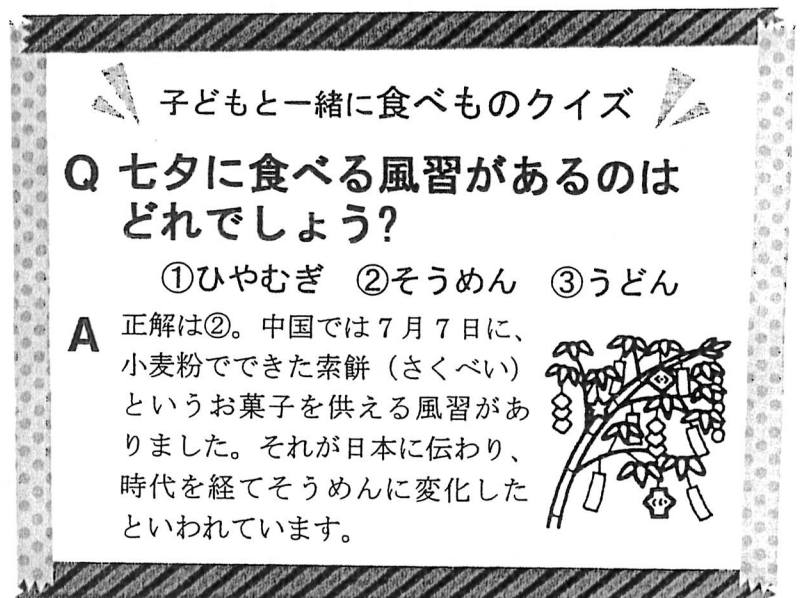 子どもと一緒に食べものクイズ
Q 七夕に食べる風習があるのは
どれでしょう?
①ひやむぎ ②そうめん ③うどん
A 正解は②。中国では7月7日に、
小麦粉でできた索餅（さくべい）
というお菓子を供える風習があ
りました。それが日本に伝わり、
時代を経てそうめんに変化した
といわれています。